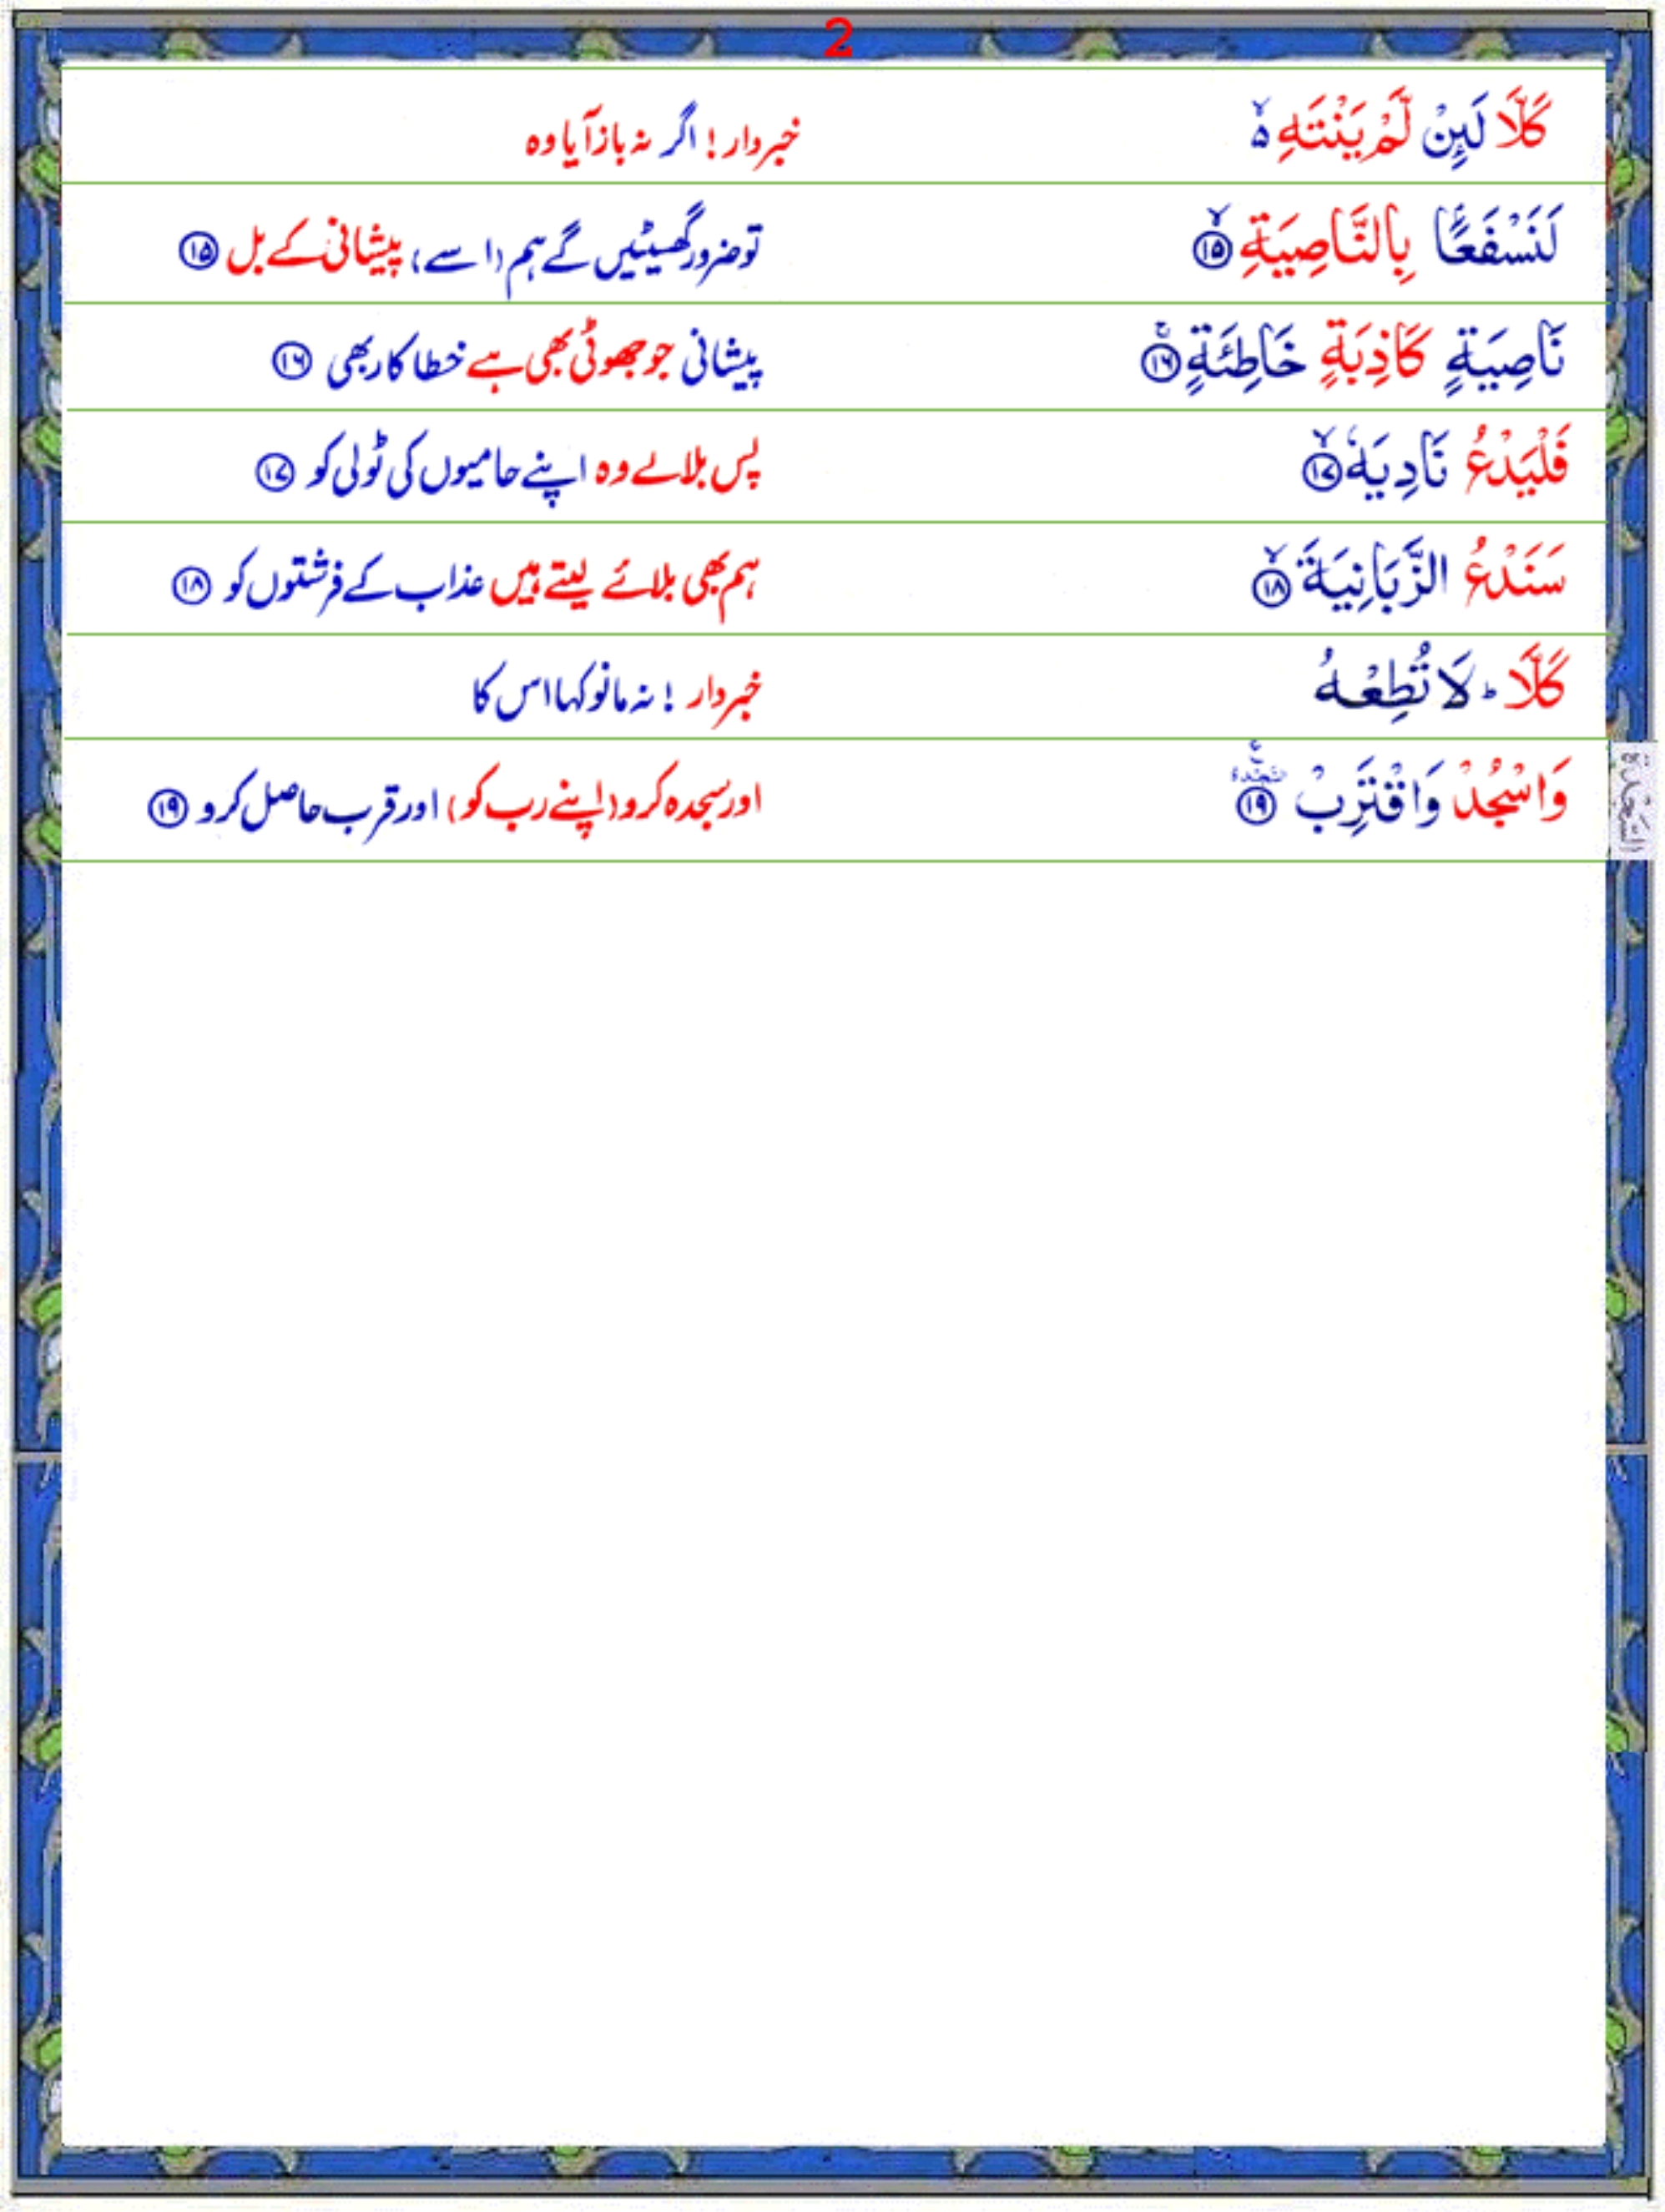 2
كَلَّا لَئِنْ لَّمْ يَنْتَهِ ۵ۙ خبردار! اگر نہ باز آیا وہ
لَنَسْفَعًۢا بِالنَّاصِيَةِ ۙ﴿۱۵﴾ تو ضرور گھسیٹیں گے ہم (اسے) پیشانی کے بل ﴿۱۵﴾
نَاصِيَةٍ كَاذِبَةٍ خَاطِئَةٍ ۚ﴿۱۶﴾ پیشانی جو جھوٹی بھی ہے خطا کار بھی ﴿۱۶﴾
فَلْيَدْعُ نَادِيَهٗ ۙ﴿۱۷﴾ پس بلالے وہ اپنے حامیوں کی ٹولی کو ﴿۱۷﴾
سَنَدْعُ الزَّبَانِيَةَ ۙ﴿۱۸﴾ ہم بھی بلائے لیتے ہیں عذاب کے فرشتوں کو ﴿۱۸﴾
كَلَّا ؕ لَا تُطِعْهُ خبردار! نہ مانو کہا اس کا
وَاسْجُدْ وَاقْتَرِبْ ﴿۱۹﴾ السجدة اور سجدہ کرو (اپنے رب کو) اور قرب حاصل کرو ﴿۱۹﴾
السَّجْدَة